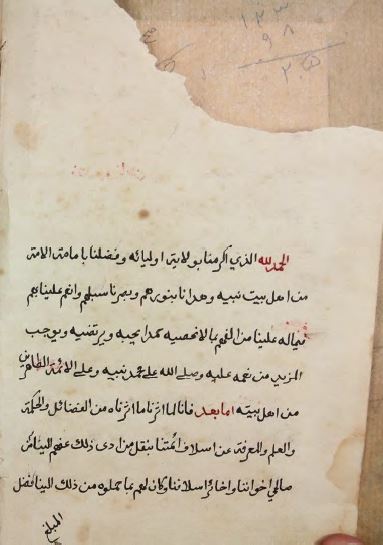 ١٢٣
٩٨
٢٠٥
الحمد لله الذي اكرمنا بولاية اوليائه وفضلنا بامامة الائمة
من اهل بيت نبيه وهدانا بنورهم وبصرنا سبلهم وانعم علينا بهم
علينا من النعم بما لا نحصيه حمدا يحبه ويرتضيه ويوجب
المزيد من نعمه عليه وصلى الله على محمد نبيه وعلى الائمة الطاهرين
من اهل بيته اما بعد فانا لما اثرنا ما اثرناه من الفضائل والحكمة
والعلم والمعرفة عن اسلاف ائمتنا بنقل من ادى ذلك عنهم الينا من
صالحي اخواننا واخائر اسلافنا وكان لهم بما حملوه من ذلك الينا فضل
المبلغ